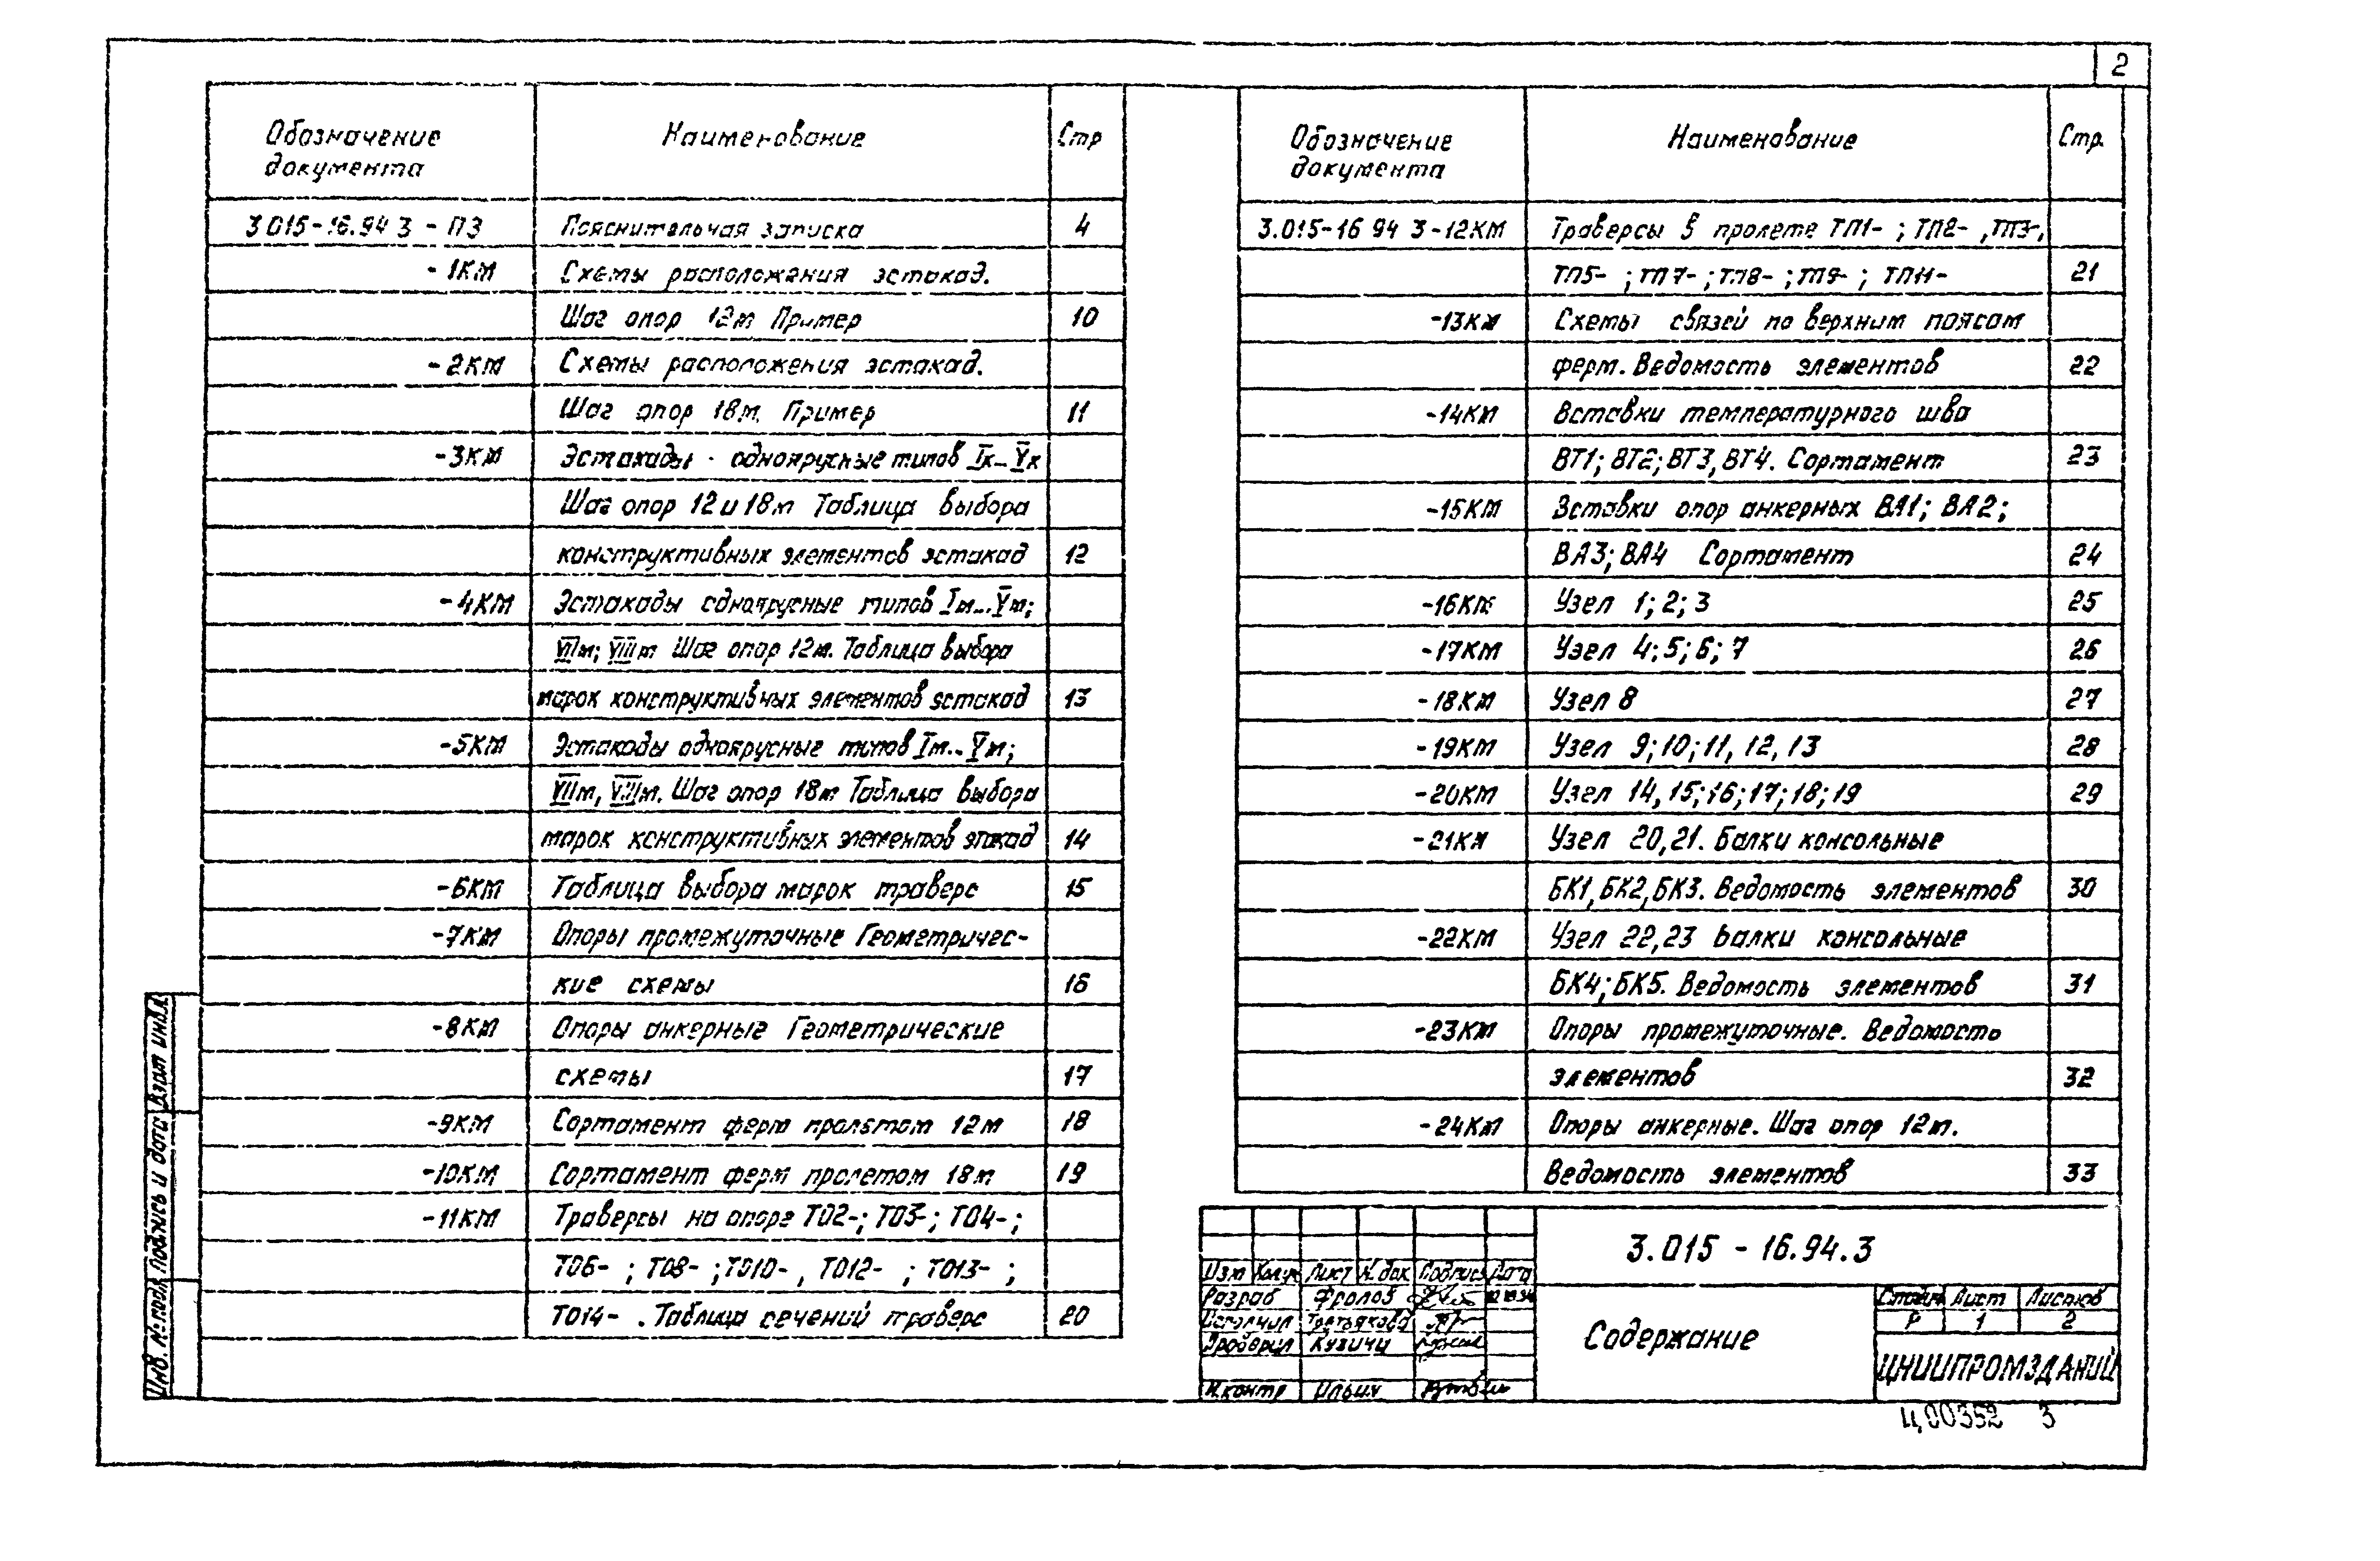 2
Обозначение документа Наименование Стр
3.015-16.94 3 - ПЗ Пояснительная записка 4
-1КМ Схемы расположения эстакад.
Шаг опор 12м Пример 10
-2КМ Схемы расположения эстакад.
Шаг опор 18м. Пример 11
-3КМ Эстакады одноярусные типов Iк-Vк
Шаг опор 12 и 18м Таблица выбора
конструктивных элементов эстакад 12
-4КМ Эстакады одноярусные типов Iм...Vм;
VIIм; VIIIм Шаг опор 12м. Таблица выбора
марок конструктивных элементов эстакад 13
-5КМ Эстакады одноярусные типов Iм..Vм;
VIIм, VIIIм. Шаг опор 18м Таблица выбора
марок конструктивных элементов эткад 14
-6КМ Таблица выбора марок траверс 15
-7КМ Опоры промежуточные Геометричес-
кие схемы 16
-8КМ Опоры анкерные Геометрические
схемы 17
-9КМ Сортамент ферм пролетом 12м 18
-10КМ Сортамент ферм пролетом 18м 19
-11КМ Траверсы на опоре ТО2-; ТО3-; ТО4-;
ТО6- ; ТО8- ; ТО10- , ТО12- ; ТО13- ;
ТО14- . Таблица сечений траверс 20
Обозначение документа Наименование Стр.
3.015-16 94 3-12КМ Траверсы в пролете ТП1- ; ТП2- , ТП3-,
ТП5- ; ТП7- ; ТП8- ; ТП9- ; ТП11- 21
-13КМ Схемы связей по верхним поясам
ферм. Ведомость элементов 22
-14КМ Вставки температурного шва
ВТ1; ВТ2; ВТ3, ВТ4. Сортамент 23
-15КМ Вставки опор анкерных ВА1; ВА2;
ВА3; ВА4 Сортамент 24
-16КМ Узел 1; 2; 3 25
-17КМ Узел 4; 5; 6; 7 26
-18КМ Узел 8 27
-19КМ Узел 9; 10; 11, 12, 13 28
-20КМ Узел 14, 15; 16; 17; 18; 19 29
-21КМ Узел 20, 21. Балки консольные
БК1, БК2, БК3. Ведомость элементов 30
-22КМ Узел 22, 23 Балки консольные
БК4; БК5. Ведомость элементов 31
-23КМ Опоры промежуточные. Ведомость
элементов 32
-24КМ Опоры анкерные. Шаг опор 12м.
Ведомость элементов 33
Взам инв.
Подпись и дата
Инв. № подл.
3.015 - 16.94.3
Изм Кол.уч Лист N док Подпись Дата
Разраб Фролов
Исполнил Третьякова
Проверил Кузичи
Н.контр Ильич
Содержание
Стадия Лист Листов
Р 1 2
ЦНИИПРОМЗДАНИЙ
Ц00352 3